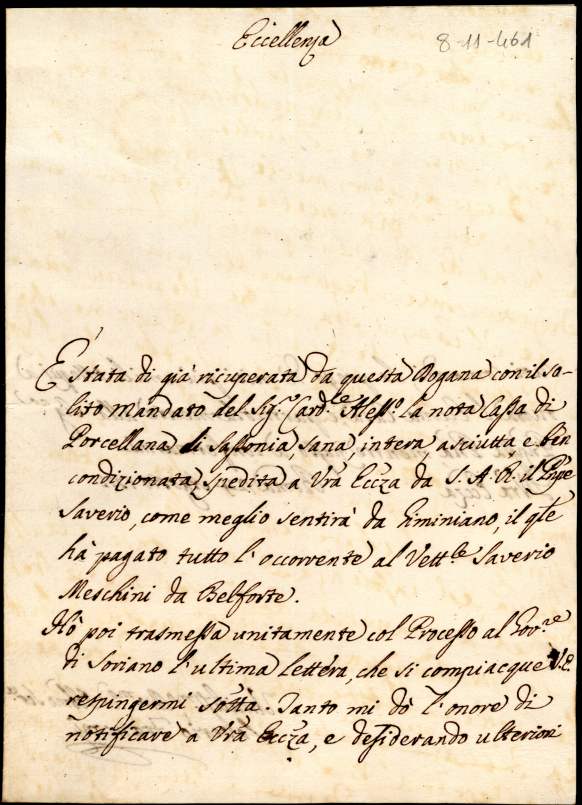 Eccellenza
8-11-461
È stata di già ricuperata da questa Dogana con il so-
lito mandato del Sig.r Card.le Aless.o la nota Cassa di
Porcellana di Sassonia, sana, intera, asciutta, e ben
condizionata, spedita a Vrà Eccza da S. A. R. il Pnpe
Saverio, come meglio sentirà da Giminiano, il qle
hà pagato tutto l'occorrente al Vett.le Saverio
Meschini da Belforte.
Hò poi trasmessa unitamente col Processo al Gov.re
di Soriano l'ultima lettera, che si compiacque V.E.
respingermi sotta. Tanto mi dò l'onore di
notificare a Vrà Eccza, e desiderando ulteriori